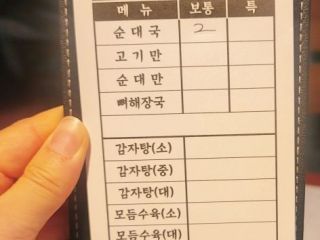 메뉴 보통 특
순대국 2
고기만
순대만
뼈해장국
감자탕(소)
감자탕(중)
감자탕(대)
모듬수육(소)
모듬수육(대)